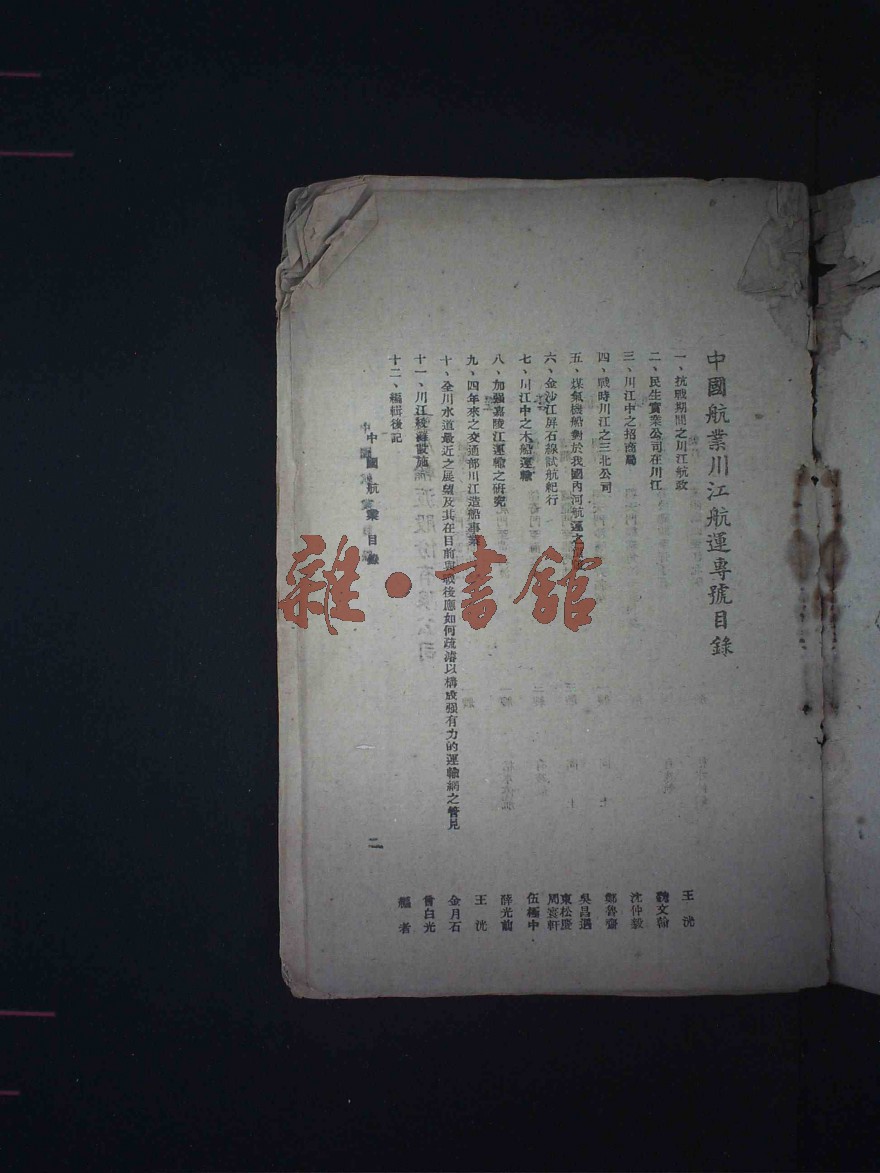 中國航業川江航運專號目錄
一、抗戰期間之川江航政 王洸
二、民生實業公司在川江 魏文翰
三、川江中之招商局 沈仲毅
四、戰時川江之三北公司 鄭魯齋
五、煤氣機船對於我國內河航運之 吳昌遇
六、金沙江屏石線試航紀行 東松慶 周寰軒
七、川江中之木船運輸 伍極中
八、加强嘉陵江運輸之研究 薛光前
九、四年來之交通部川江造船事業 王洸
十、全川水道最近之展望及其在目前與戰後應如何疏濬以構成强有力的運輸網之管見 金月石
十一、川江絞灘設施 曾白光
十二、編輯後記 編者
中國航業目錄
二
雜·書館